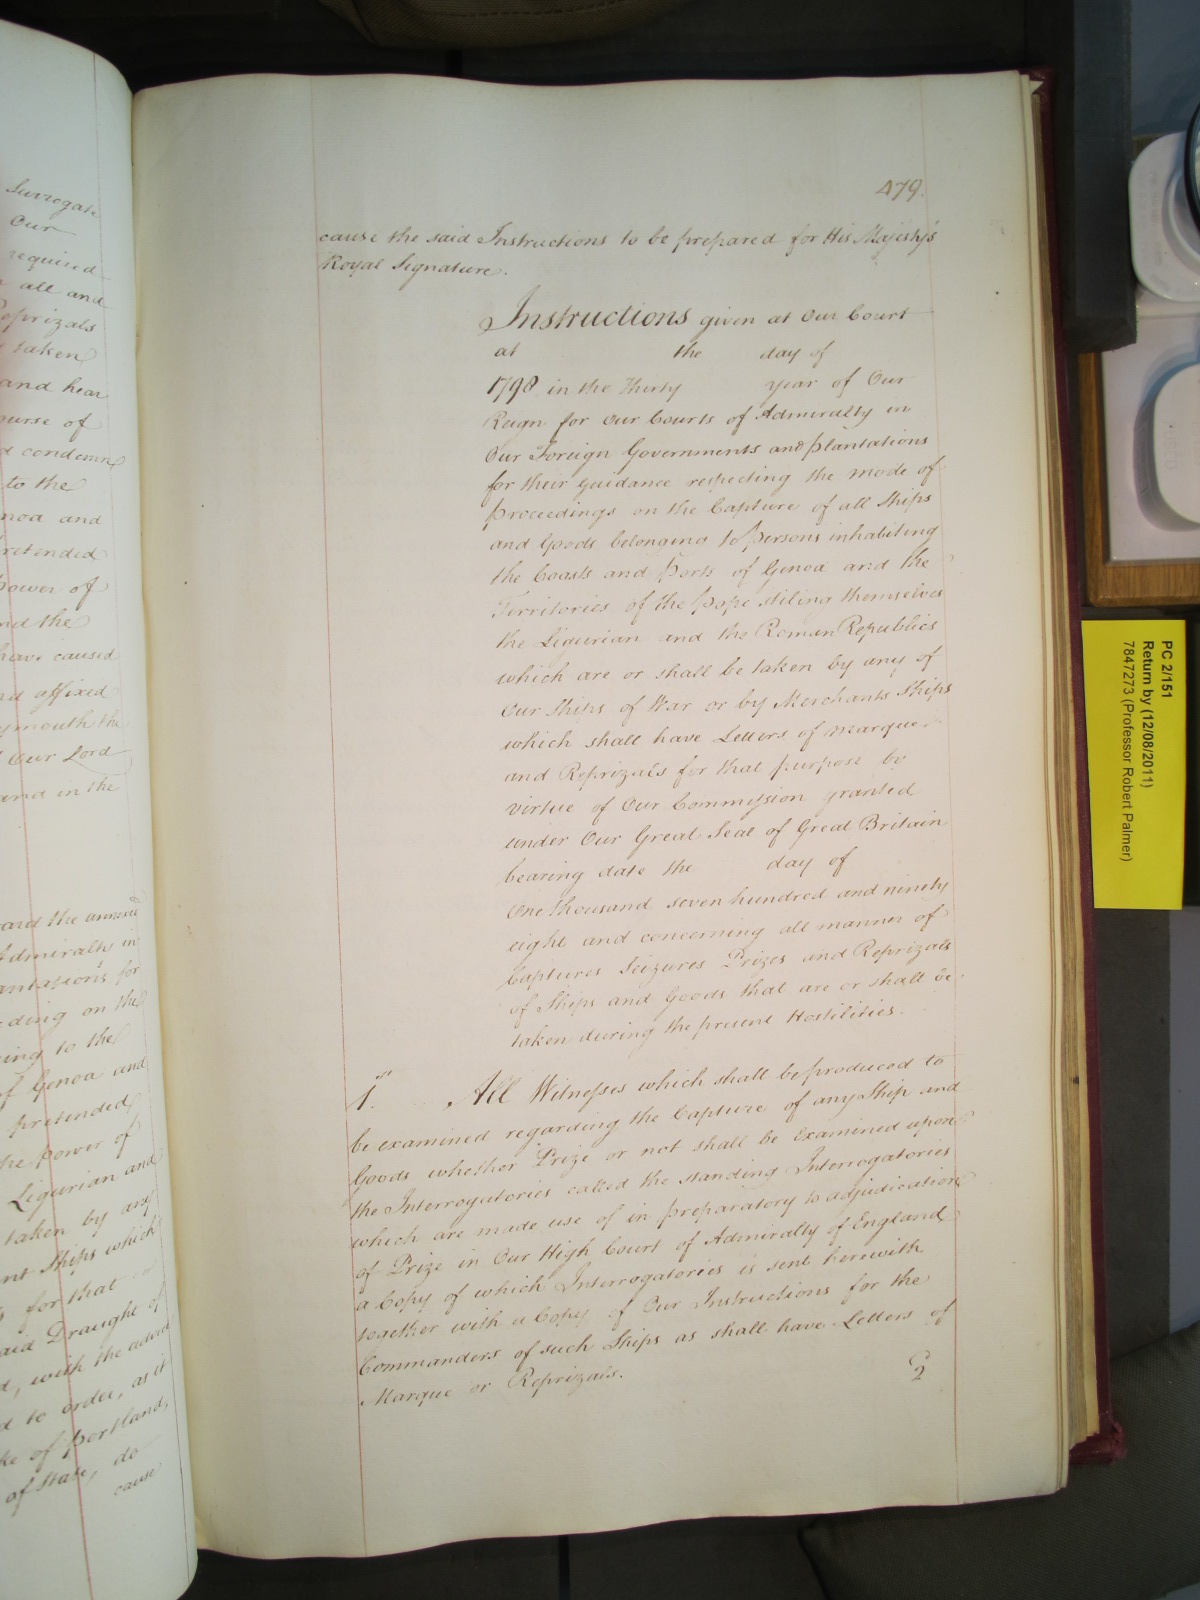 Surrogate
Our
required
all and
Reprizals
taken
and hear
course of
condemn
to the
Genoa and
pretended
power of
and the
have caused
and affixed
the
Our Lord
and in the
the annexed
Admiralty in
Plantations for
on the
to the
of Genoa and
pretended
the power of
Ligurian and
taken by any
Ships which
for that
said Draught of
with the advice
to order, as it
of Portland,
of State, do
cause
479.
cause the said Instructions to be prepared for His Majesty's
Royal Signature.
Instructions given at Our Court
at the day of
1798 in the Thirty year of Our
Reign for Our Courts of Admiralty in
Our Foreign Governments and Plantations
for their guidance respecting the mode of
Proceedings on the Capture of all Ships
and Goods belonging to Persons inhabiting
the Coasts and Ports of Genoa and the
Territories of the Pope stiling themselves
the Ligurian and the Roman Republics
which are or shall be taken by any of
Our Ships of War or by Merchants Ships
which shall have Letters of Marque
and Reprizals for that purpose by
virtue of Our Commission granted
under Our Great Seal of Great Britain
bearing date the day of
One thousand seven hundred and ninety
eight and concerning all manner of
Captures Seizures Prizes and Reprizals
of Ships and Goods that are or shall be
taken during the present Hostilities.
1st. All Witnesses which shall be produced to
be examined regarding the Capture of any Ship and
Goods whether Prize or not shall be Examined upon
the Interrogatories called the standing Interrogatories
which are made use of in preparatory to adjudication
of Prize in Our High Court of Admiralty of England
a Copy of which Interrogatories is sent herewith
together with a Copy of Our Instructions for the
Commanders of such Ships as shall have Letters of
Marque or Reprizals.
2
PC 2/151
Return by (12/08/2011)
7847273 (Professor Robert Palmer)